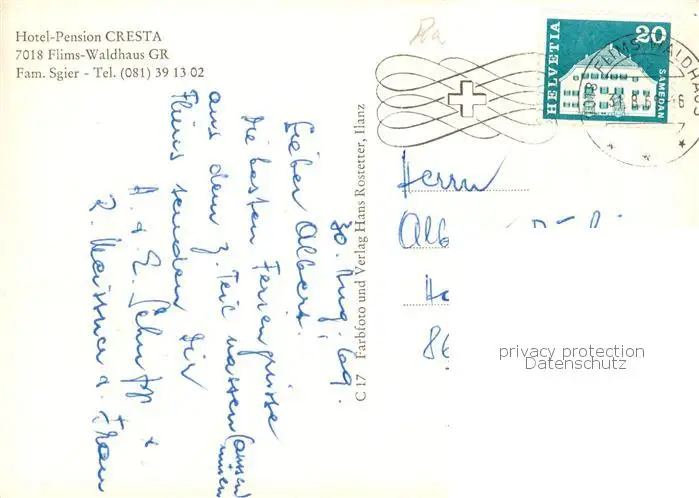 Hotel-Pension CRESTA
7018 Flims-Waldhaus GR
Fam. Sgier - Tel. (081) 39 13 02
HELVETIA
20
SAMEDAN
FLIMS-WALDHAUS
C 17 Farbfoto und Verlag Hans Rostetter, Ilanz
30. Aug. 69.
Lieber Albert.
Die besten Feriengrüsse
aus dem z. Teil nassen (aussen
Flims senden Dir
A. + E. +
R. Meissner u. Frau
Herrn
Alb
86
privacy protection
Datenschutz